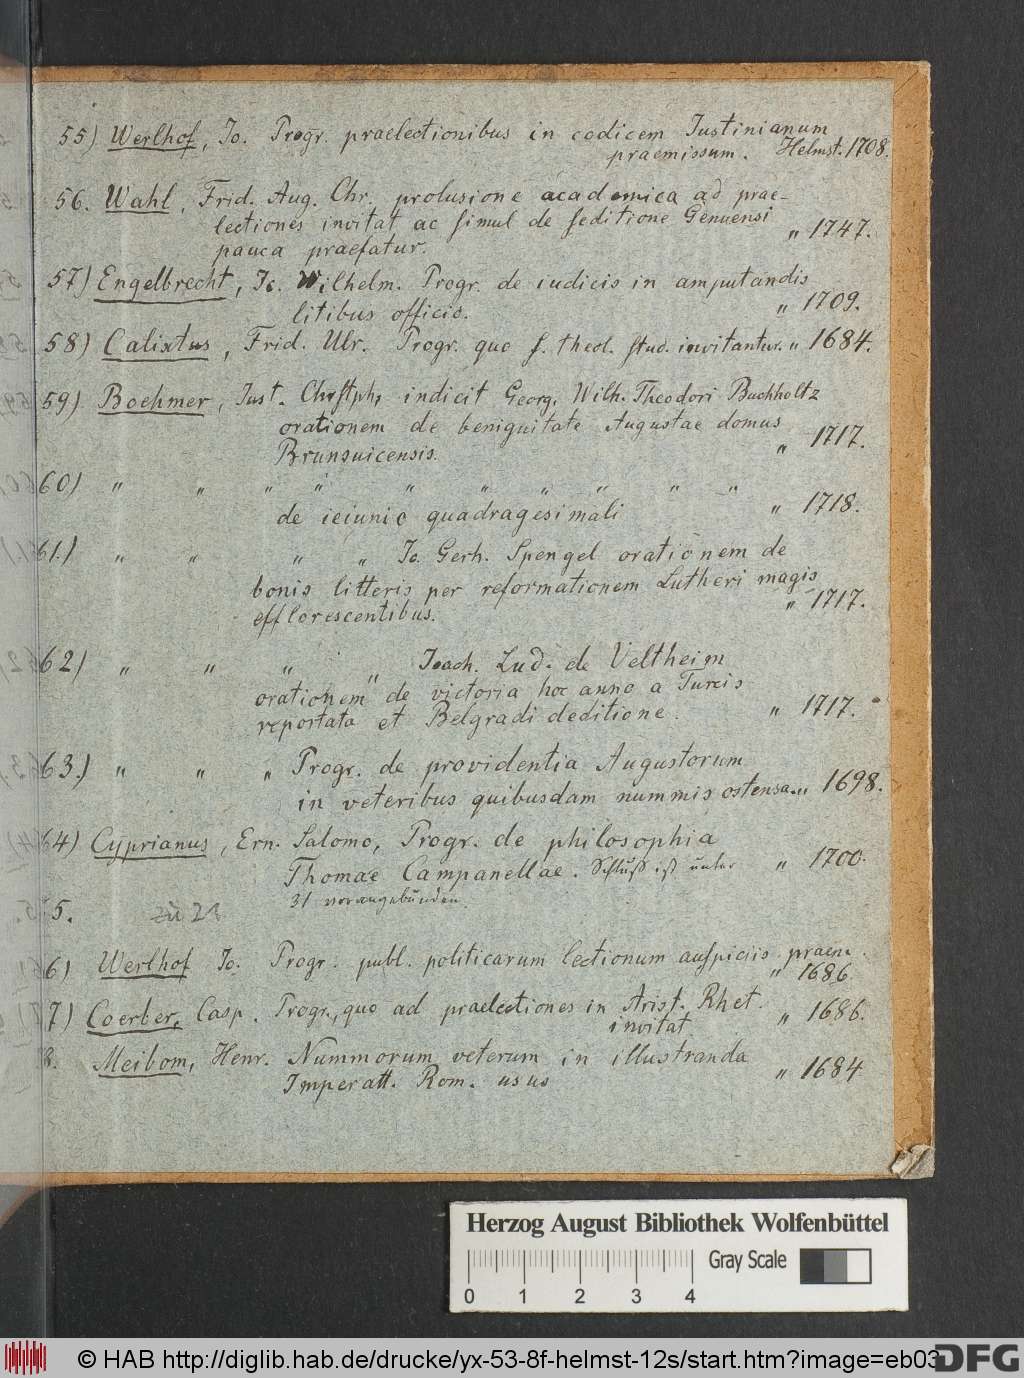 55) Werlhof, Io. Progr. praelectionibus in codicem Iustinianum
praemissum. Helmst. 1708.
56. Wahl, Frid. Aug. Chr. prolusione academica ad prae-
lectiones invitat ac simul de seditione Genuensi
pauca praefatur. " 1747.
57) Engelbrecht, Io. Wilhelm. Progr. de iudicis in amputandis
litibus officio. " 1709.
58) Calixtus, Frid. Ulr. Progr. quo s. theol. stud. invitantur. " 1684.
59) Boehmer, Iust. Chrstph, indicit Georg. Wilh. Theodori Buchholtz
orationem de benignitate Augustae domus
Brunsuicensis. " 1717.
60) " " " " " " " " " "
de ieiunio quadragesimali " 1718.
61.) " " " " Io. Gerh. Spengel orationem de
bonis litteris per reformationem Lutheri magis
efflorescentibus. " 1717.
62) " " " " Ioach. Lud. de Veltheim
orationem de victoria hoc anno a Turcis
reportata et Belgradi deditione. " 1717.
63.) " " " Progr. de providentia Augustorum
in veteribus quibusdam nummis ostensa. " 1698.
64) Cyprianus, Ern. Salomo, Progr. de philosophia
Thomae Campanellae. Schluß ist unter " 1700.
31 vorangebunden.
5. zu 23
6) Werlhof Io. Progr. publ. politicarum lectionum auspiciis praem.
" 1686.
7) Coerber, Casp. Progr., quo ad praelectiones in Arist. Rhet.
invitat " 1686.
8. Meibom, Henr. Nummorum veterum in illustranda
Imperatt. Rom. usus " 1684
Herzog August Bibliothek Wolfenbüttel
Gray Scale
0 1 2 3 4
© HAB http://diglib.hab.de/drucke/yx-53-8f-helmst-12s/start.htm?image=eb03
DFG